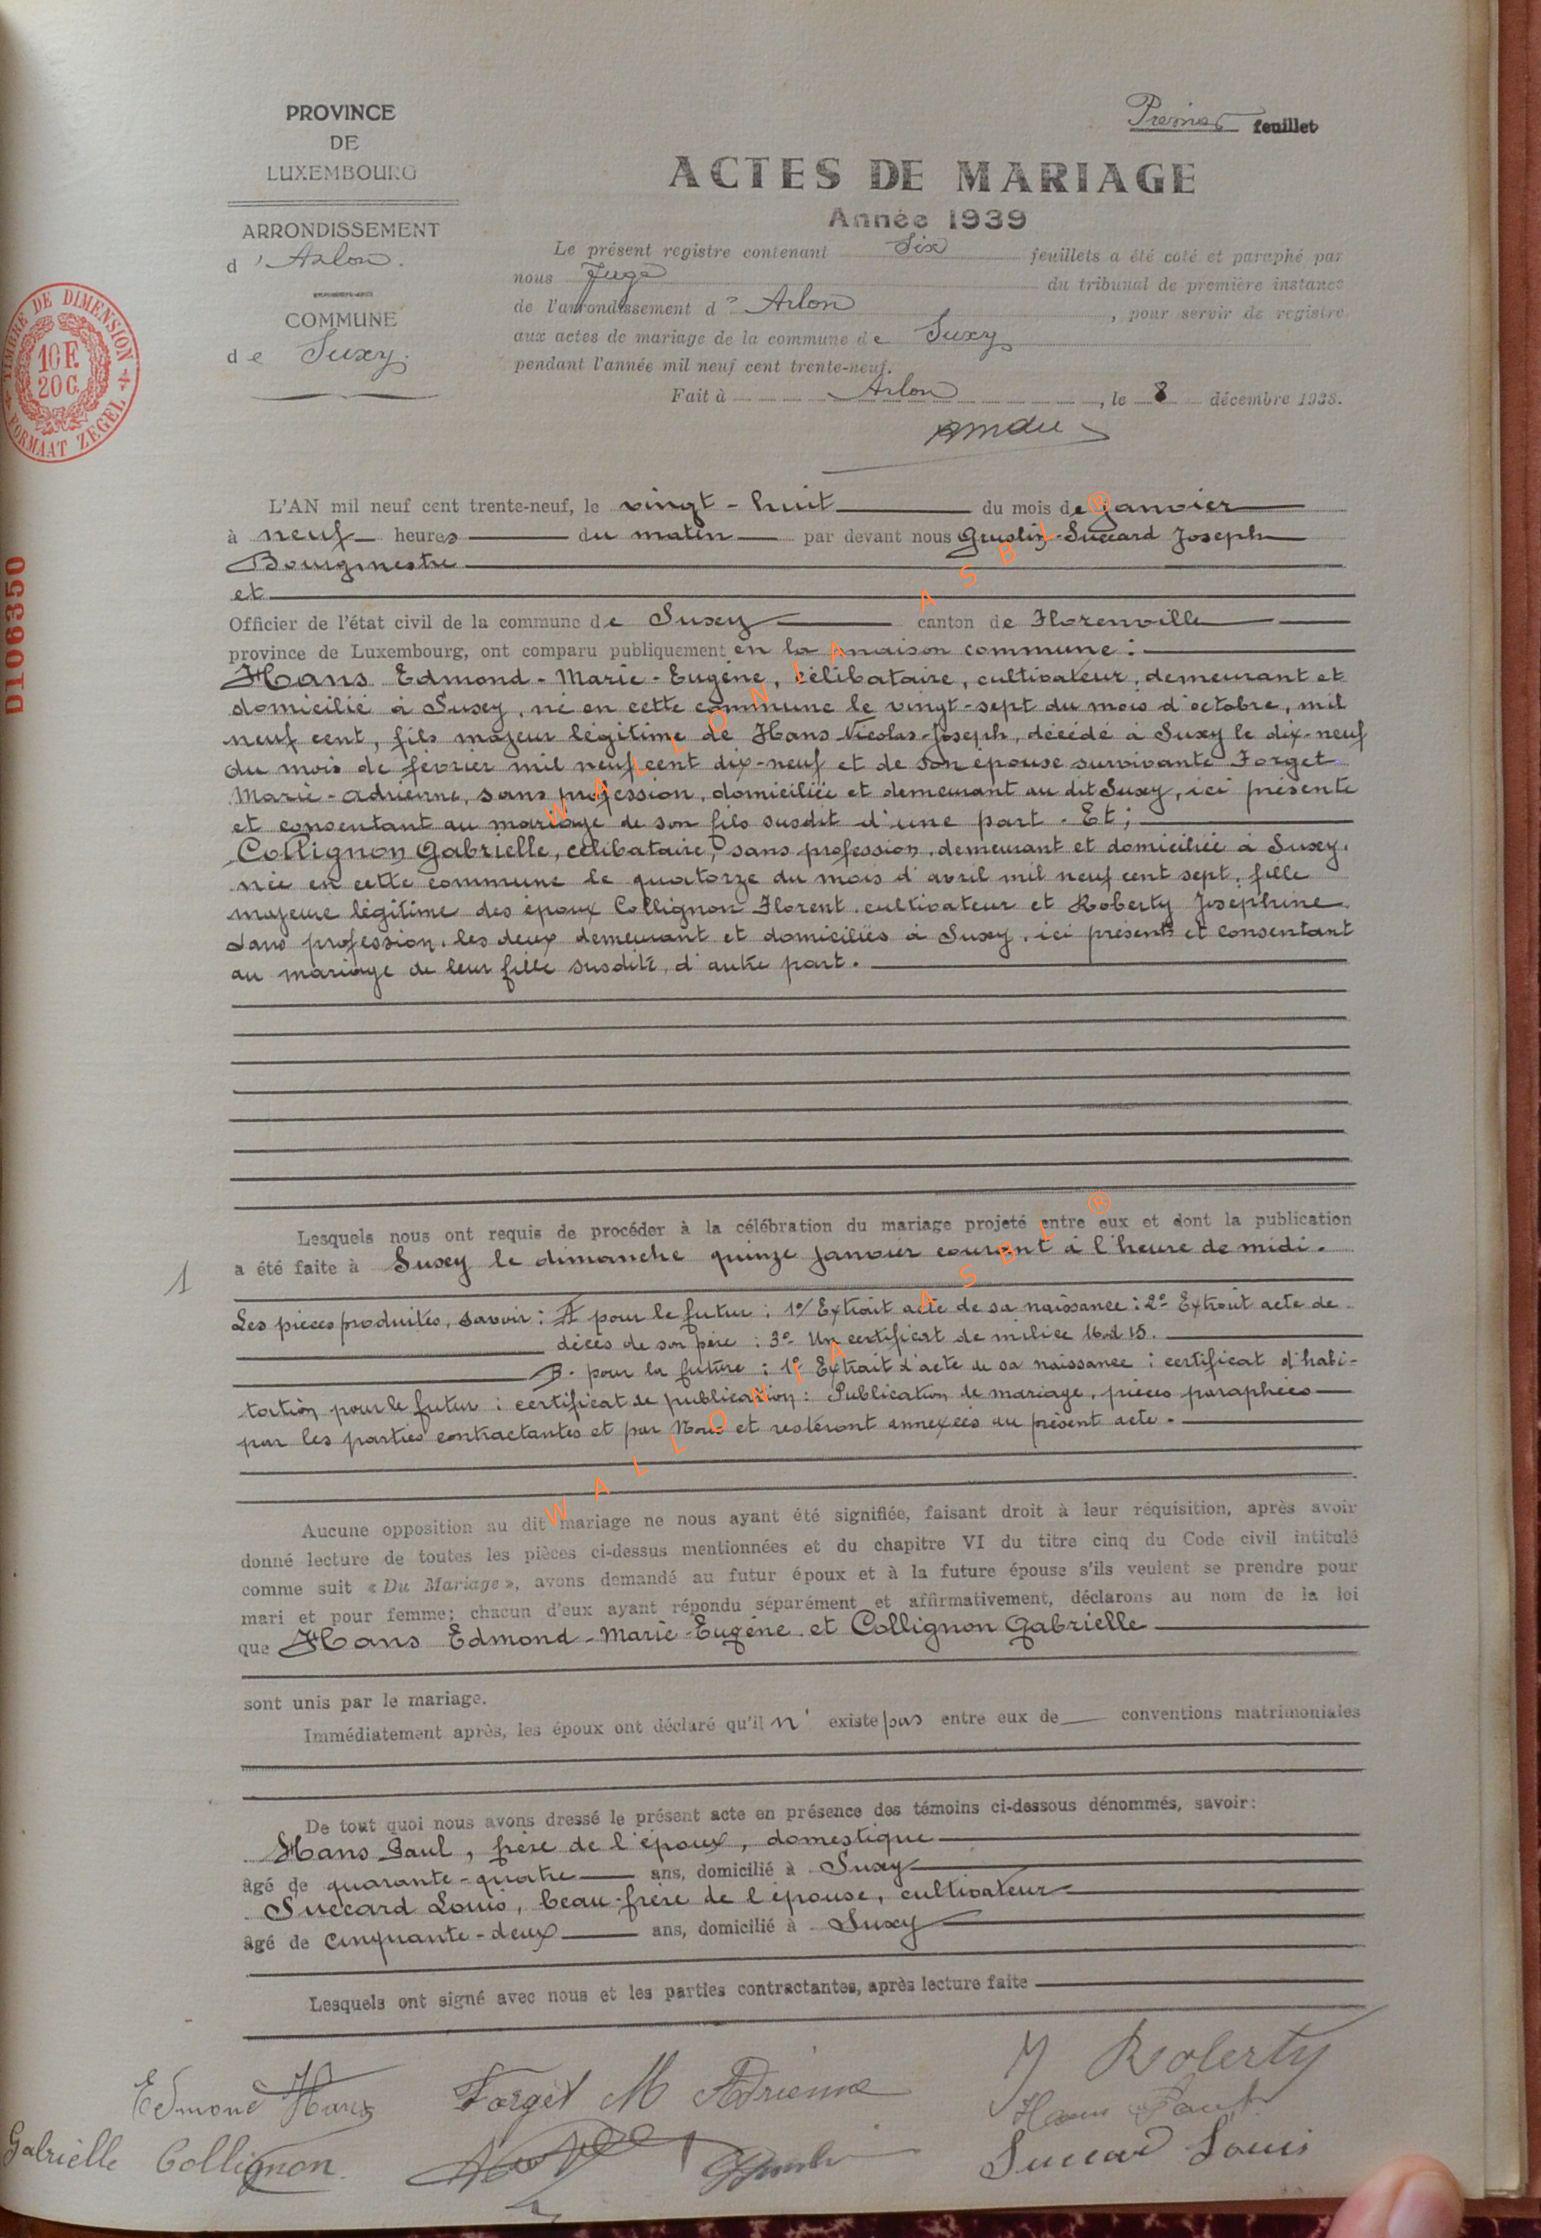 PROVINCE
DE
LUXEMBOURG
ARRONDISSEMENT
d'Arlon.
COMMUNE
de Suxy.
TIMBRE DE DIMENSION
10 F.
20 C.
FORMAAT ZEGEL
D106350
Premier feuillet
ACTES DE MARIAGE
Année 1939
Le présent registre contenant Six feuillets a été coté et paraphé par
nous Juge du tribunal de première instance
de l'arrondissement d'Arlon, pour servir de registre
aux actes de mariage de la commune de Suxy
pendant l'année mil neuf cent trente-neuf.
Fait à Arlon, le 8 décembre 1938.
L'AN mil neuf cent trente-neuf, le vingt-huit du mois de janvier
à neuf heures du matin par devant nous Guslin-Succard Joseph
Bourgmestre
et
Officier de l'état civil de la commune de Suxy canton de Florenville
province de Luxembourg, ont comparu publiquement en la maison commune :
Hans Edmond-Marie-Eugène, célibataire, cultivateur, demeurant et
domicilié à Suxy, né en cette commune le vingt-sept du mois d'octobre, mil
neuf cent, fils majeur légitime de Hans Nicolas-Joseph, décédé à Suxy le dix-neuf
du mois de février mil neuf cent dix-neuf et de son épouse survivante Forget
Marie-Adrienne, sans profession, domiciliée et demeurant au dit Suxy, ici présente
et consentant au mariage de son fils susdit d'une part. Et;
Collignon Gabrielle, célibataire, sans profession, demeurant et domiciliée à Suxy,
née en cette commune le quatorze du mois d'avril mil neuf cent sept, fille
majeure légitime des époux Collignon Florent, cultivateur et Roberty Joséphine
sans profession, les deux demeurant et domiciliés à Suxy, ici présents et consentant
au mariage de leur fille susdite, d'autre part.
Lesquels nous ont requis de procéder à la célébration du mariage projeté entre eux et dont la publication
1
a été faite à Suxy le dimanche quinze janvier courant à l'heure de midi.
Les pièces produites, savoir : A pour le futur : 1o/ Extrait acte de sa naissance : 2o Extrait acte de
décès de son père : 3o Un certificat de milice Mod 15.
B. pour la future : 1o Extrait d'acte de sa naissance : certificat d'habi-
tation pour le futur : certificat de publication : Publication de mariage, pièces paraphées
par les parties contractantes et par Nous et resteront annexées au présent acte.
Aucune opposition au dit mariage ne nous ayant été signifiée, faisant droit à leur réquisition, après avoir
donné lecture de toutes les pièces ci-dessus mentionnées et du chapitre VI du titre cinq du Code civil intitulé
comme suit « Du Mariage », avons demandé au futur époux et à la future épouse s'ils veulent se prendre pour
mari et pour femme; chacun d'eux ayant répondu séparément et affirmativement, déclarons au nom de la loi
que Hans Edmond-Marie-Eugène et Collignon Gabrielle
sont unis par le mariage.
Immédiatement après, les époux ont déclaré qu'il n'existe pas entre eux de conventions matrimoniales
De tout quoi nous avons dressé le présent acte en présence des témoins ci-dessous dénommés, savoir:
Hans Paul, frère de l'époux, domestique
âgé de quarante-quatre ans, domicilié à Suxy
Succard Louis, beau-frère de l'épouse, cultivateur
âgé de cinquante-deux ans, domicilié à Suxy
Lesquels ont signé avec nous et les parties contractantes, après lecture faite
Edmond Hans Forget M Adrienne J Roberty
Hans Paul
Gabrielle Collignon Succard Louis
WALLONIA ASBL ®
WALLONIA ASBL ®